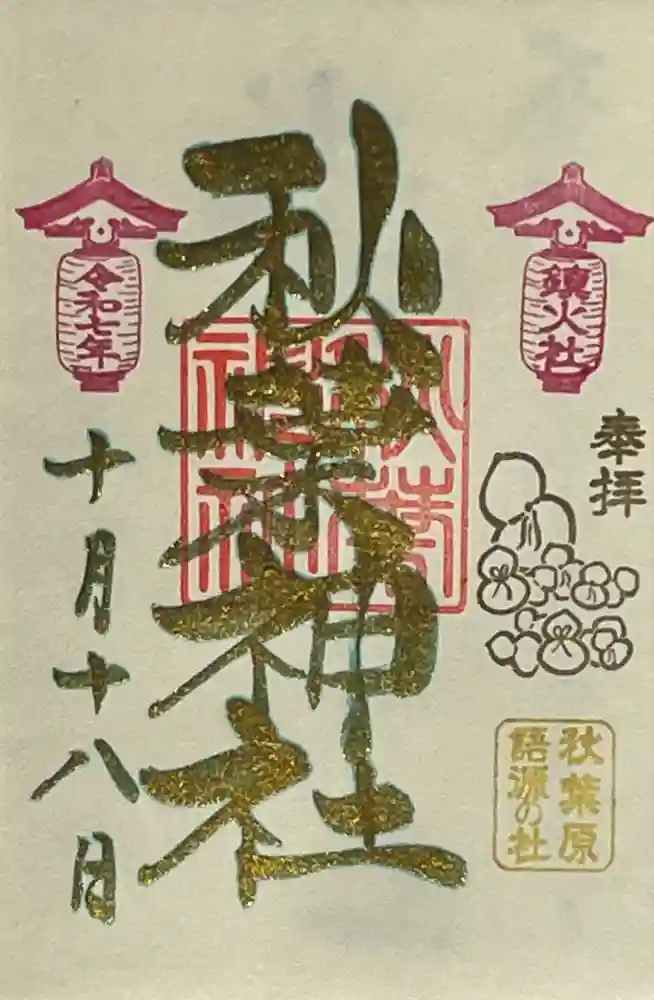 鎮火社
奉拝
秋葉原
語源の社
秋葉神社
秋葉
神社
令和七年
十月十八日